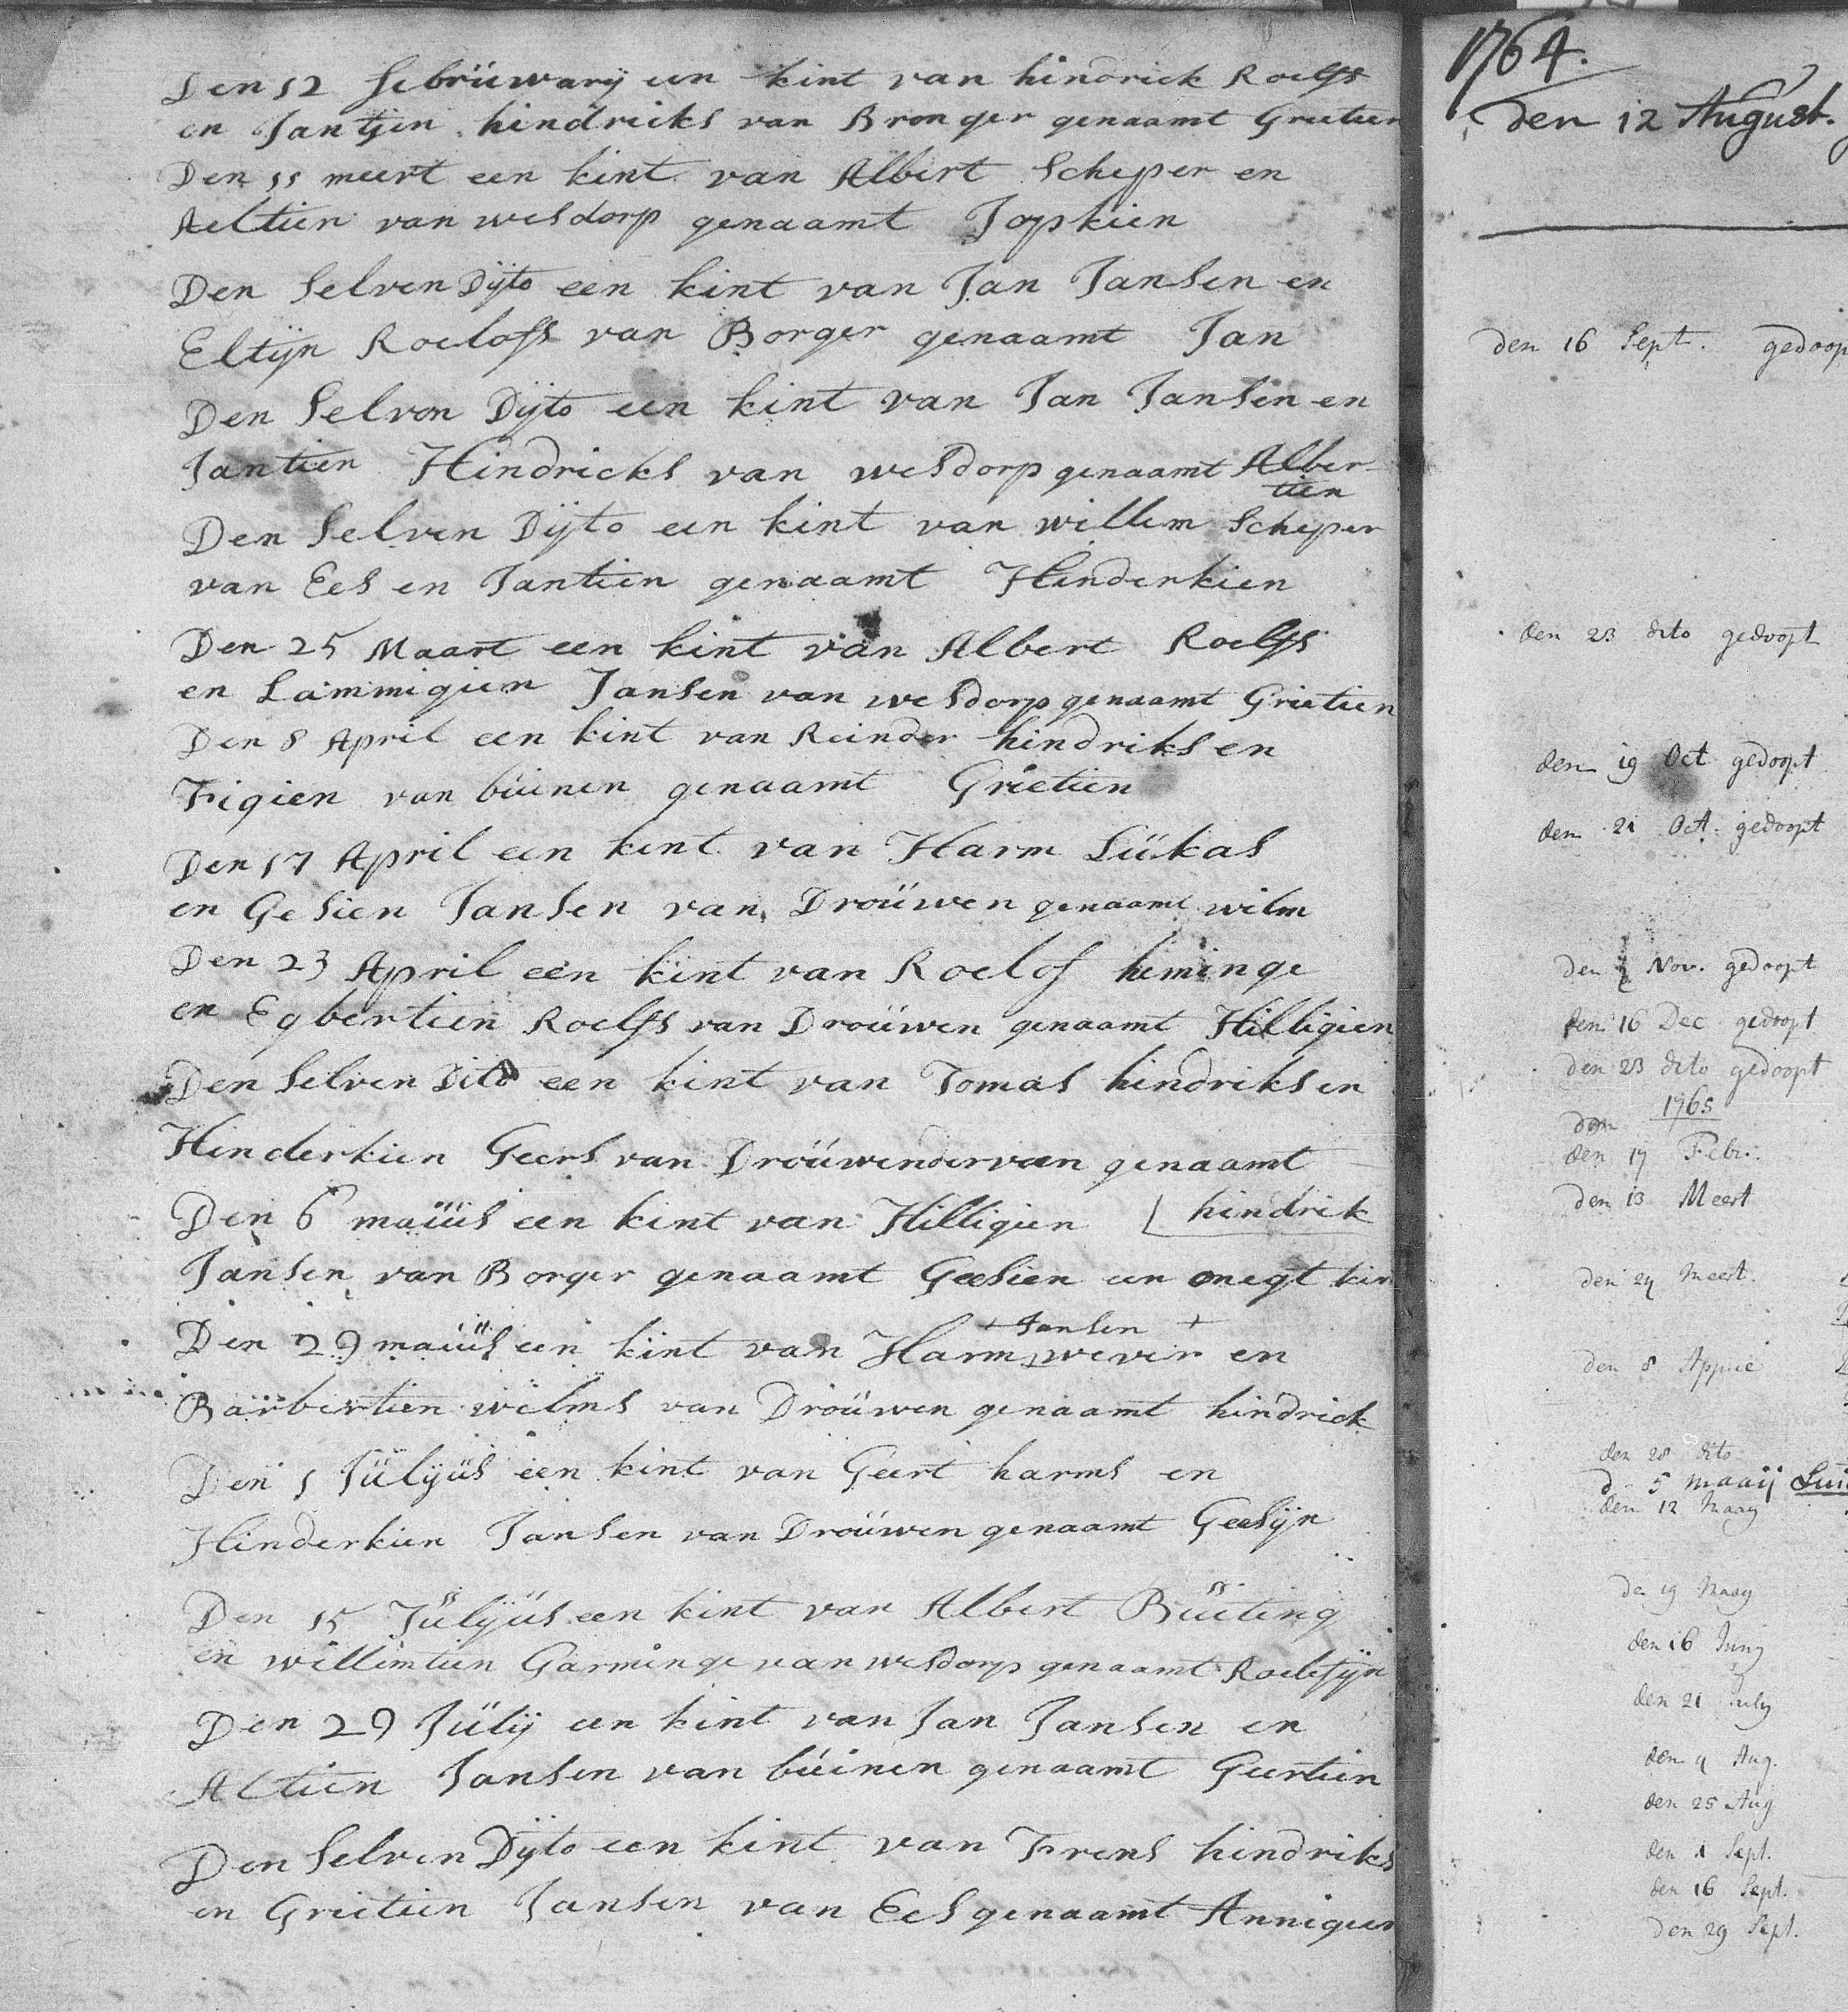 Den 12 febrüwarÿ een kint van hindrick Roelfs
en Jantÿen hindricks van Bronger genaamt Grietien
Den 11 meert een kint van Albert Scheper en
Aeltien van wesdorp genaamt Jopkien
Den Selven Dÿto een kint van Jan Jansen en
Eltÿn Roelofs van Borger genaamt Jan
Den Selven Dÿto een kint van Jan Jansen en
Jantien Hindricks van wesdorp genaamt Alber-
tien
Den Selven Dÿto een kint van willem Scheper
van Ees en Jantien genaamt Hinderkien
Den 25 Maart een kint van Albert Roelfs
en Lammigien Jansen van wesdorp genaamt Grietien
Den 8 April een kint van Reinder hindriks en
Figien van büinen genaamt Grietien
Den 17 April een kint van Harm Lükas
en Gesien Jansen van Droüwen genaamt wilm
Den 23 April een kint van Roelof heminge
en Egbertien Roelfs van Droüwen genaamt Hilligien
Den Selven Dito een kint van Tomas hindriks en
Hinderkien Geers van Droüwenderveen genaamt
Den 6 maiüs een kint van Hilligien hindrik
Jansen van Borger genaamt Geesien een onegt kin
Jansen
Den 29 maiüs een kint van Harm wever en
Barbertien wilms van Droüwen genaamt hindrick
Den 1 Jülÿüs een kint van Geert harms en
Hinderkien Jansen van Droüwen genaamt Geesÿn
Den 15 Jülÿüs een kint van Albert Büiting
en willimtien Garminge van wesdorp genaamt Roelfÿn
Den 29 Jülÿ een kint van Jan Jansen en
Altien Jansen van büinen genaamt Geertien
Den Selven Dÿto een kint van Frens hindriks
en Grietien Jansen van Ees genaamt Annigien
1764.
Den 12 August.
den 16 Sept. gedoop
den 23 dito gedoopt
den 19 Oct gedoopt
den 21 Oct. gedoopt
den Nov. gedoopt
den 16 Dec gedoopt
den 23 dito gedoopt
1765
den 17 Febr.
den 13 Meert
den 24 Meert.
den 8
den 28 dito
d 5 maaij
den 12 Maay
de 19 Maay
den 16 Juny
den 21 July
den 4 Aug.
den 25 Aug
den 1 Sept.
den 16 Sept.
den 29 Sept.